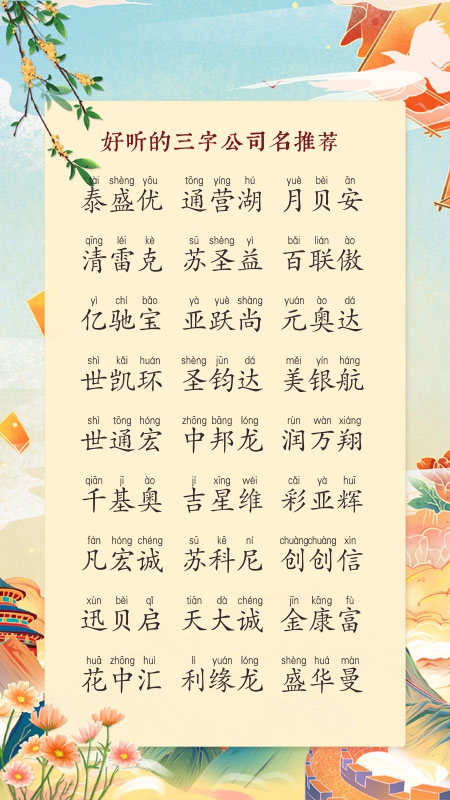 好听的三字公司名推荐
tài shèng yōu tōng yíng hú yuè bèi ān
泰盛优 通营湖 月贝安
qīng léi kè sū shèng yì bǎi lián ào
清雷克 苏圣益 百联傲
yì chí bǎo yà yuè shàng yuán ào dá
亿驰宝 亚跃尚 元奥达
shì kǎi huán shèng jūn dá měi yín háng
世凯环 圣钧达 美银航
shì tōng hóng zhōng bāng lóng rùn wàn xiáng
世通宏 中邦龙 润万翔
qiān jī ào jí xīng wéi cǎi yà huī
千基奥 吉星维 彩亚辉
fán hóng chéng sū kē ní chuàng chuàng xìn
凡宏诚 苏科尼 创创信
xùn bèi qǐ tiān dà chéng jīn kāng fù
迅贝启 天大诚 金康富
huā zhōng huì lì yuán lóng shèng huá màn
花中汇 利缘龙 盛华曼